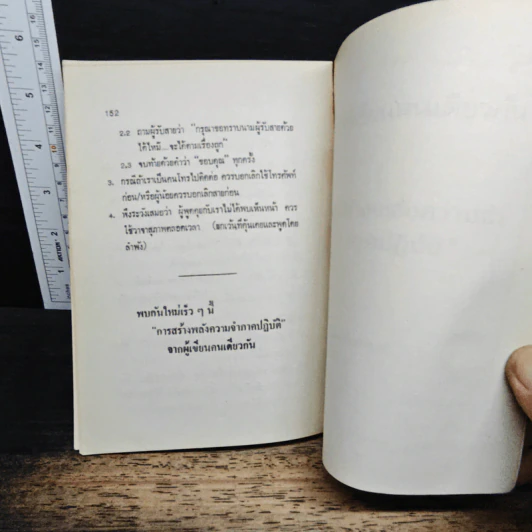 152
2.2 ถามผู้รับสายว่า "กรุณาขอทราบนามผู้รับสายด้วย
ได้ไหม...จะได้ตามเรื่องถูก"
2.3 จบท้ายด้วยคำว่า "ขอบคุณ" ทุกครั้ง
3. กรณีถ้าเราเป็นคนโทรไปติดต่อ ควรบอกเลิกใช้โทรศัพท์
ก่อน/หรือผู้น้อยควรบอกเลิกสายก่อน
4. พึงระวังเสมอว่า ผู้พูดคุยกับเราไม่ได้พบเห็นหน้า ควร
ใช้วาจาสุภาพตลอดเวลา (ยกเว้นที่คุ้นเคยและพูดโดย
ลำพัง)
พบกันใหม่เร็ว ๆ นี้
"การสร้างพลังความจำภาคปฏิบัติ"
จากผู้เขียนคนเดียวกัน
6
5
4
3
2
1
15
14
13
12
11
10
9
8
7
6
5
4
3
2
1